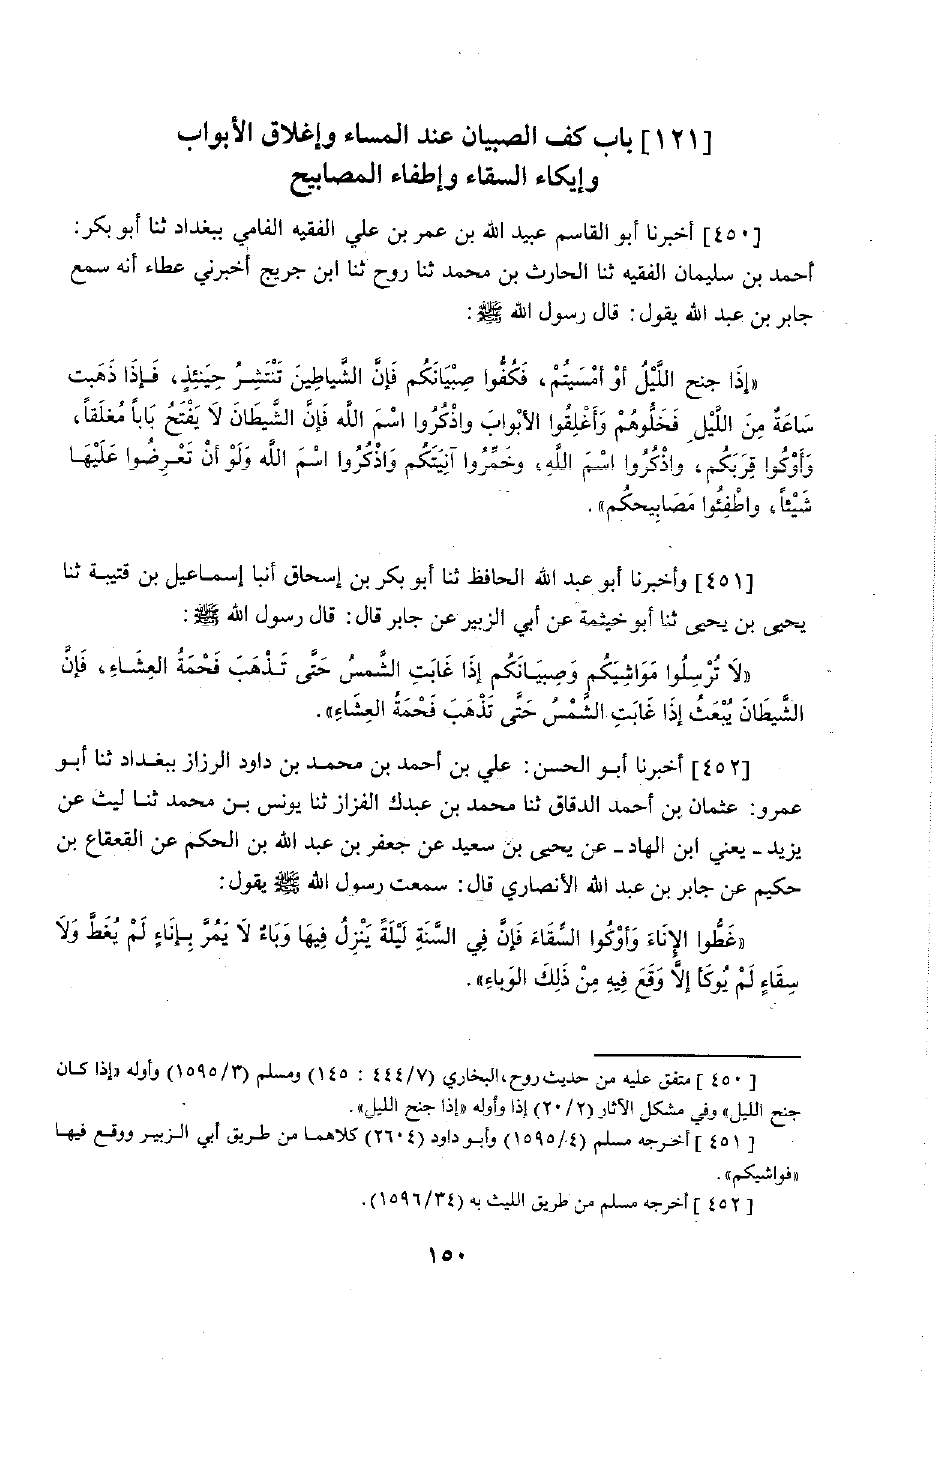 [١٢١] باب كف الصبيان عند المساء وإغلاق الأبواب
وإيكاء السقاء وإطفاء المصابيح
[٤٥٠] أخبرنا أبو القاسم عبيد الله بن عمر بن علي الفقيه الفامي ببغداد ثنا أبو بكر:
أحمد بن سليمان الفقيه ثنا الحارث بن محمد ثنا روح ثنا ابن جريج أخبرني عطاء أنه سمع
جابر بن عبد الله يقول: قال رسول الله ﷺ:
«إِذَا جنح اللَّيْلُ أوْ أمْسَيتُمْ، فَكُفُّوا صِبْيَانَكُم فَإنَّ الشَّياطِينَ تَنْتَشِرُ حِينَئِذٍ، فَإذَا ذَهَبت
سَاعَةٌ مِنَ اللَّيْلِ فَخَلُّوهُمْ وَأغْلِقُوا الأبْوابَ واذْكُرُوا اسْمَ اللَّه فَإنَّ الشَّيطَانَ لَا يَفْتَحُ بَاباً مُغلَقاً،
وَأوْكُوا قِرَبَكُم، واذْكُرُوا اسْمَ اللَّهِ، وخَمِّرُوا آنِيَتَكُم وَاذْكُروا اسْمَ اللَّه وَلَوْ أنْ تَعْرِضُوا عَلَيْهَا
شَيْئاً، واطْفِئُوا مَصَابِيحكُم».
[٤٥١] وأخبرنا أبو عبد الله الحافظ ثنا أبو بكر بن إسحاق أنبا إسماعيل بن قتيبة ثنا
يحيى بن يحيى ثنا أبو خيثمة عن أبي الزبير عن جابر قال: قال رسول الله ﷺ:
«لَا تُرْسِلُوا مَوَاشِيَكُم وَصِبيَانَكُم إذَا غَابَتِ الشَّمسُ حَتَّى تَذْهَبَ فَحْمَةُ العِشَاءِ، فَإنَّ
الشَّيطَانَ يُبْعَثُ إذَا غَابَتِ الشَّمْسُ حَتَّى تَذْهَبَ فَحْمَةُ العِشَاءِ».
[٤٥٢] أخبرنا أبو الحسن: علي بن أحمد بن محمد بن داود الرزاز ببغداد ثنا أبو
عمرو: عثمان بن أحمد الدقاق ثنا محمد بن عبدك الفزاز ثنا يونس بن محمد ثنا ليث عن
يزيد ـ يعني ابن الهاد ـ عن يحيى بن سعيد عن جعفر بن عبد الله بن الحكم عن القعقاع بن
حكيم عن جابر بن عبد الله الأنصاري قال: سمعت رسول الله ﷺ يقول:
«غَطُّوا الإنَاءَ وَأوْكُوا السِّقَاءَ فَإنَّ فِي السَّنَةِ لَيْلَةً يَنْزِلُ فِيهَا وَبَاءٌ لَا يَمُرَّ بِإنَاءٍ لَمْ يُغَطَّ وَلَا
سِقَاءٍ لَمْ يُوكَأ إلَّا وَقَعَ فِيهِ مِنْ ذَلِكَ الوَباءِ».
[٤٥٠] متفق عليه من حديث روح، البخاري (٤٤٤/٧ : ١٤٥) ومسلم (١٥٩٥/٣) وأوله «إذا كان
جنح الليل» وفي مشكل الآثار (٢٠/٢) إذا وأوله «إذا جنح الليل».
[٤٥١] أخرجه مسلم (١٥٩٥/٤) وأبو داود (٢٦٠٤) كلاهما من طريق أبي الزبير ووقع فيها
«فواشيكم».
[٤٥٢] أخرجه مسلم من طريق الليث به (١٥٩٦/٣٤).
١٥٠